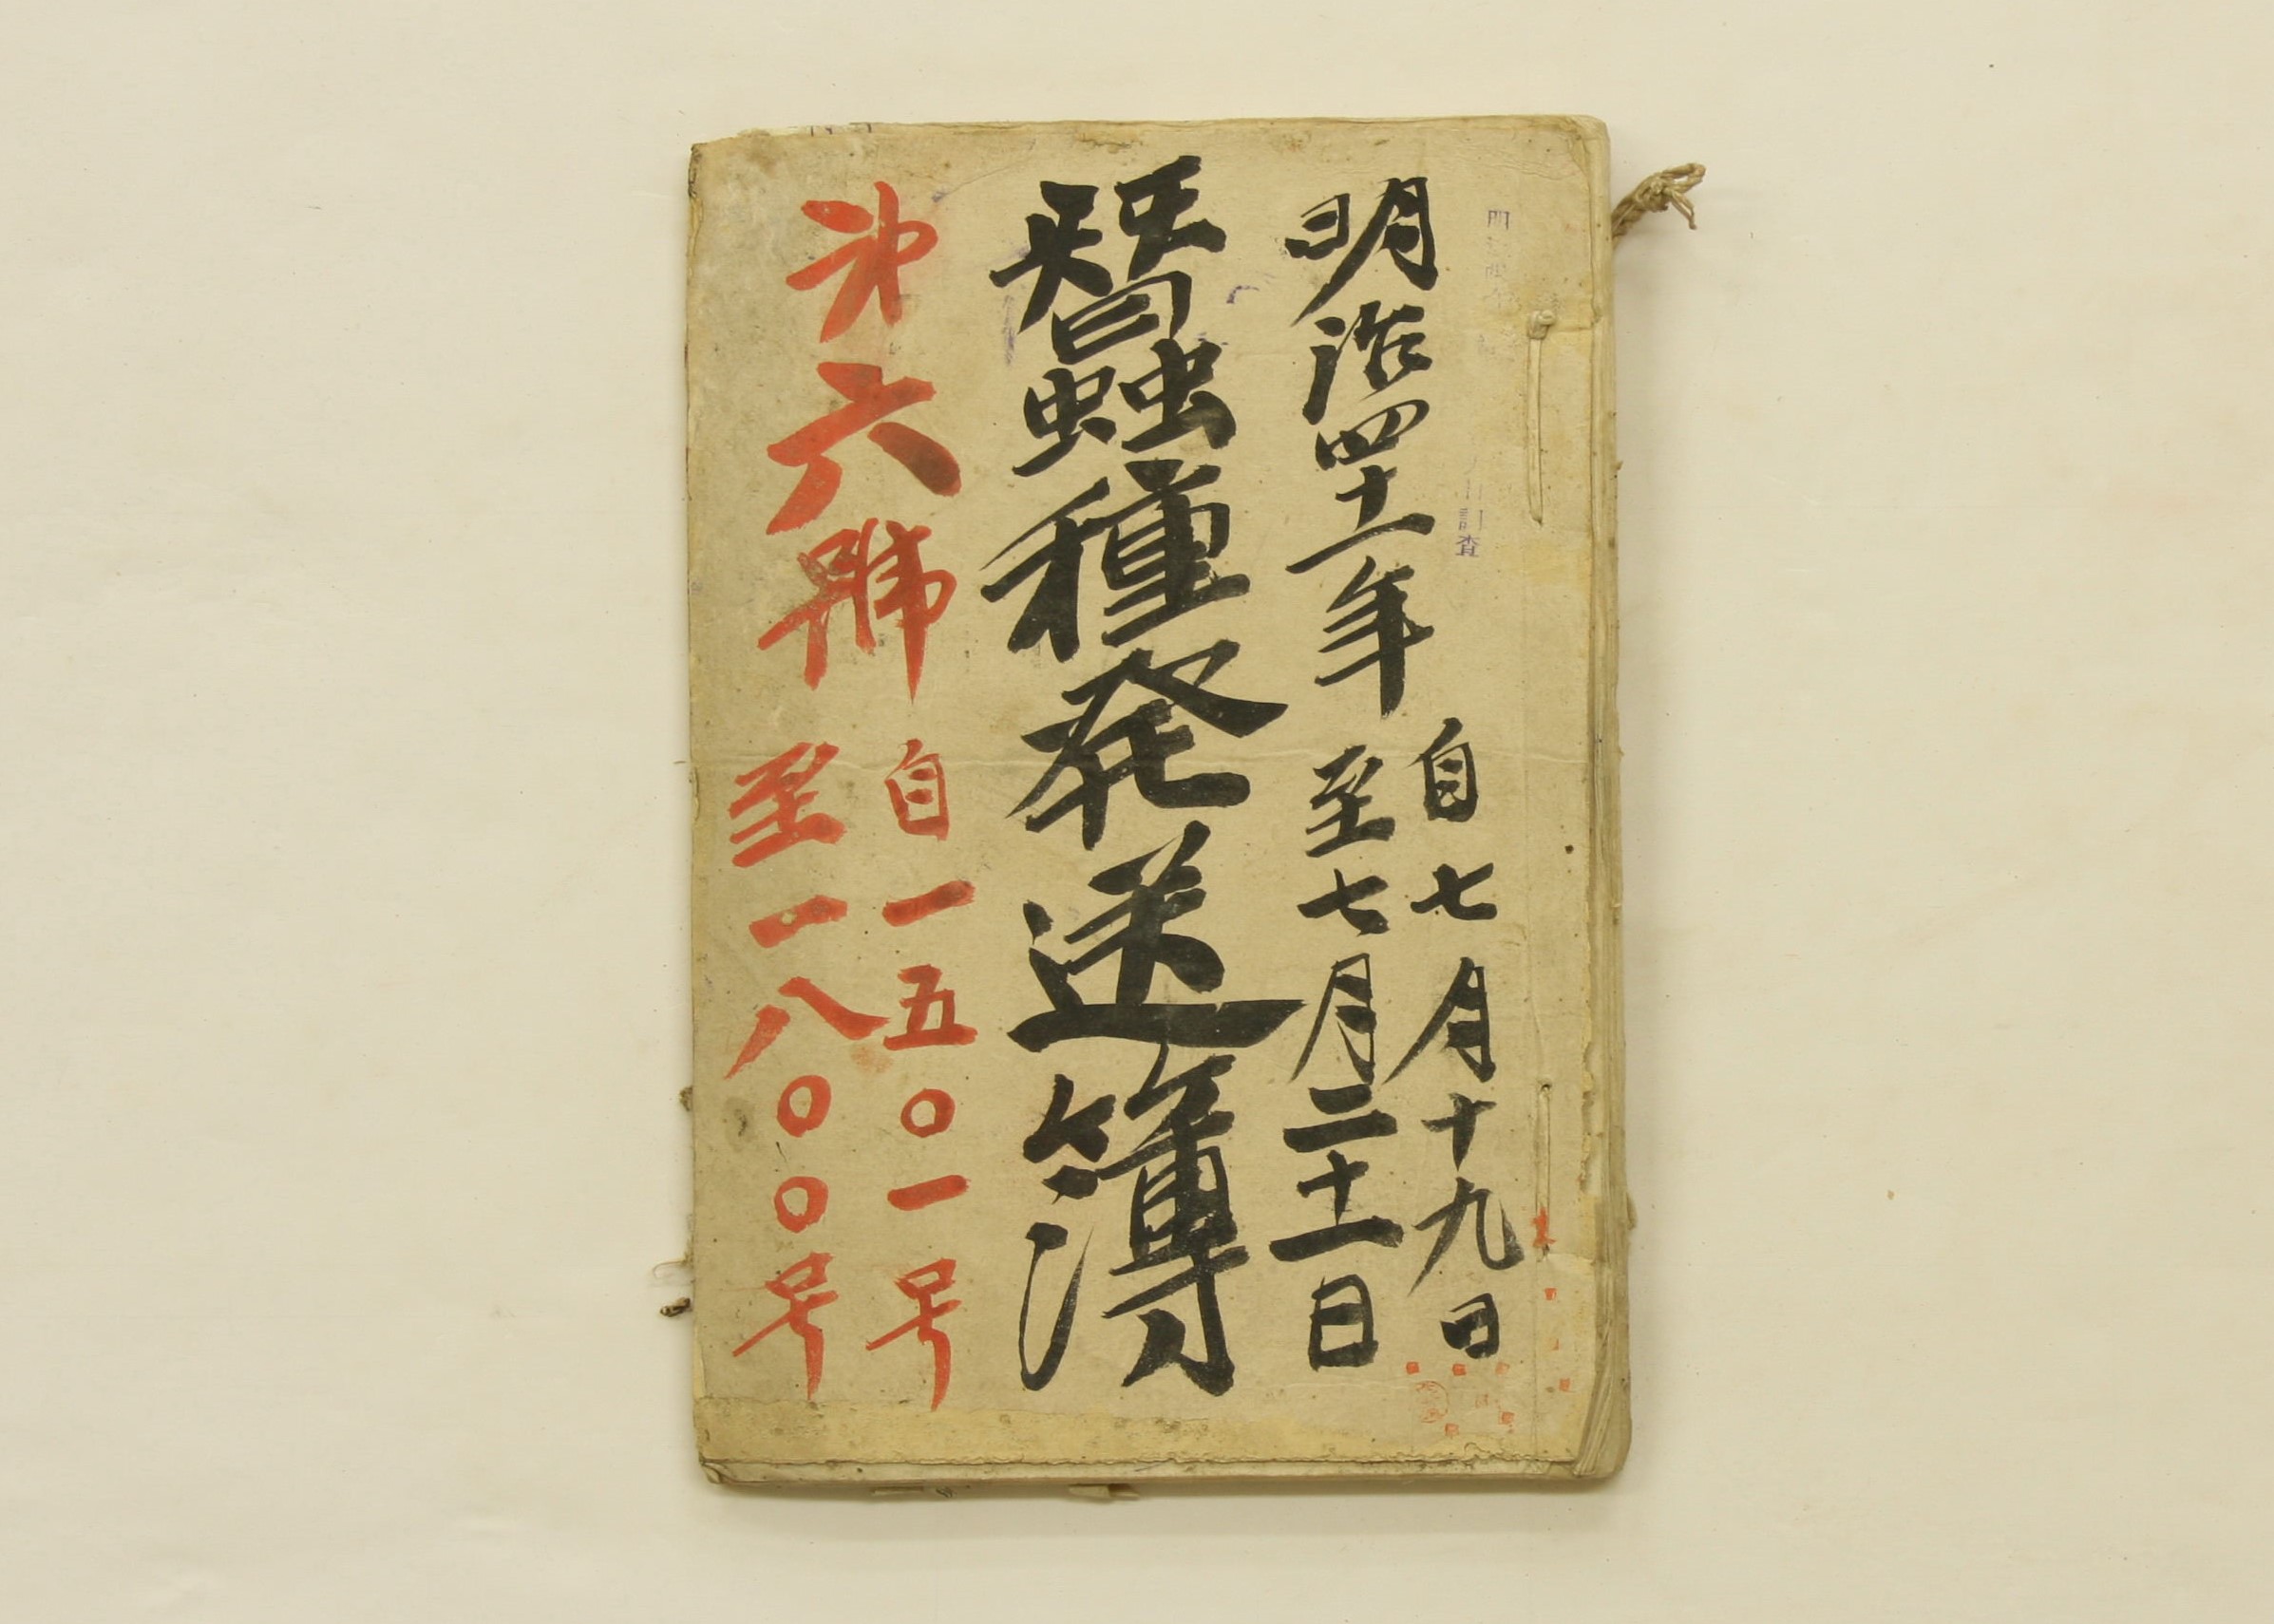 明治四十一年
自七月十九日
至七月二十一日
蠶種発送簿
第六號
自一五〇一号
至一八〇〇号